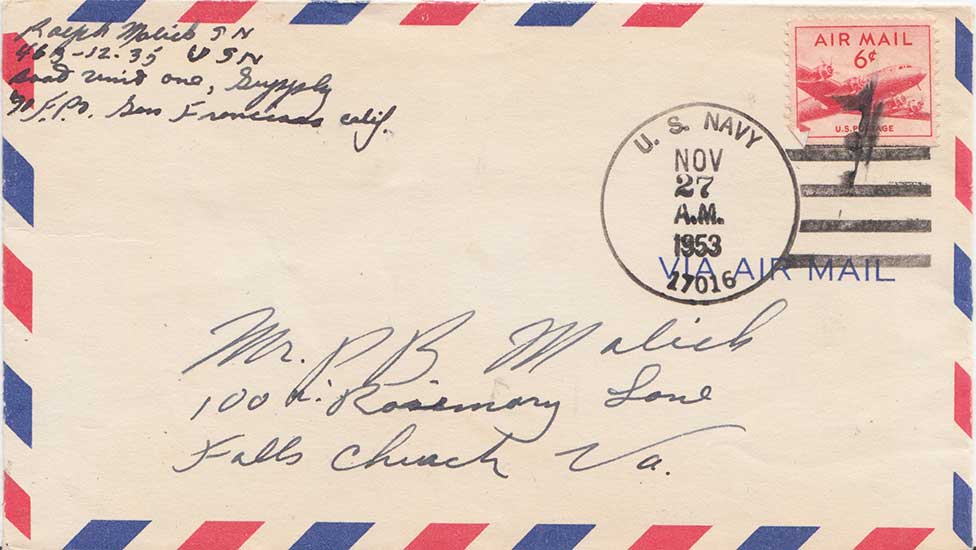 Ralph Malick SN
463-12-35 USN
Road Unit one, Supply
℅ F.P.O. San Francisco calif.
AIR MAIL
6¢
U.S. POSTAGE
U. S. NAVY
NOV
27
A.M.
1953
17016
VIA AIR MAIL
Mr. P B Malick
100 N. Rosemary Lane
Falls Church Va.